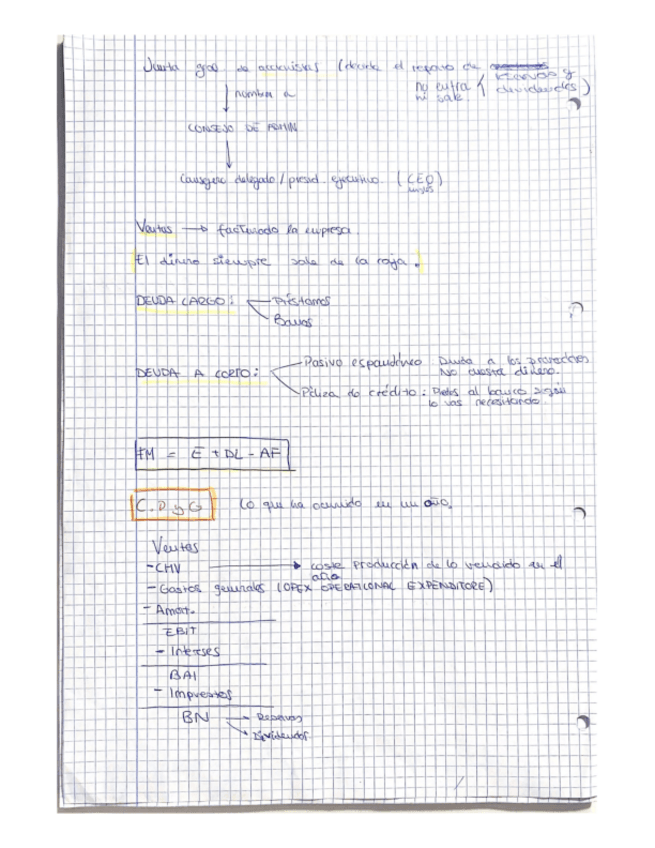 Junta gral de accionistas (decide el reparto de reservas y
no entra ni sale
dividendos)
nombra a
CONSEJO DE ADMIN
Consejero delegado / presid. ejecutivo (CEO)
Ventas → facturado la empresa
El dinero siempre sale de la caja.
DEUDA LARGO:
Préstamos
Bonos
DEUDA A CORTO:
Pasivo espontáneo Deuda a los proveedores
No cuesta dinero.
Póliza de crédito: Pides al banco según
lo vas necesitando.
FM = E + DL - AF
C.P.yG Lo que ha ocurrido en un año.
Ventas
- CMV → coste producción de lo vendido en el
año
- Gastos generales (OPEX OPERATIONAL EXPENDITORE)
- Amort.
EBIT
- Intereses
BAI
- Impuestos
BN → Reservas
→ Dividendos.